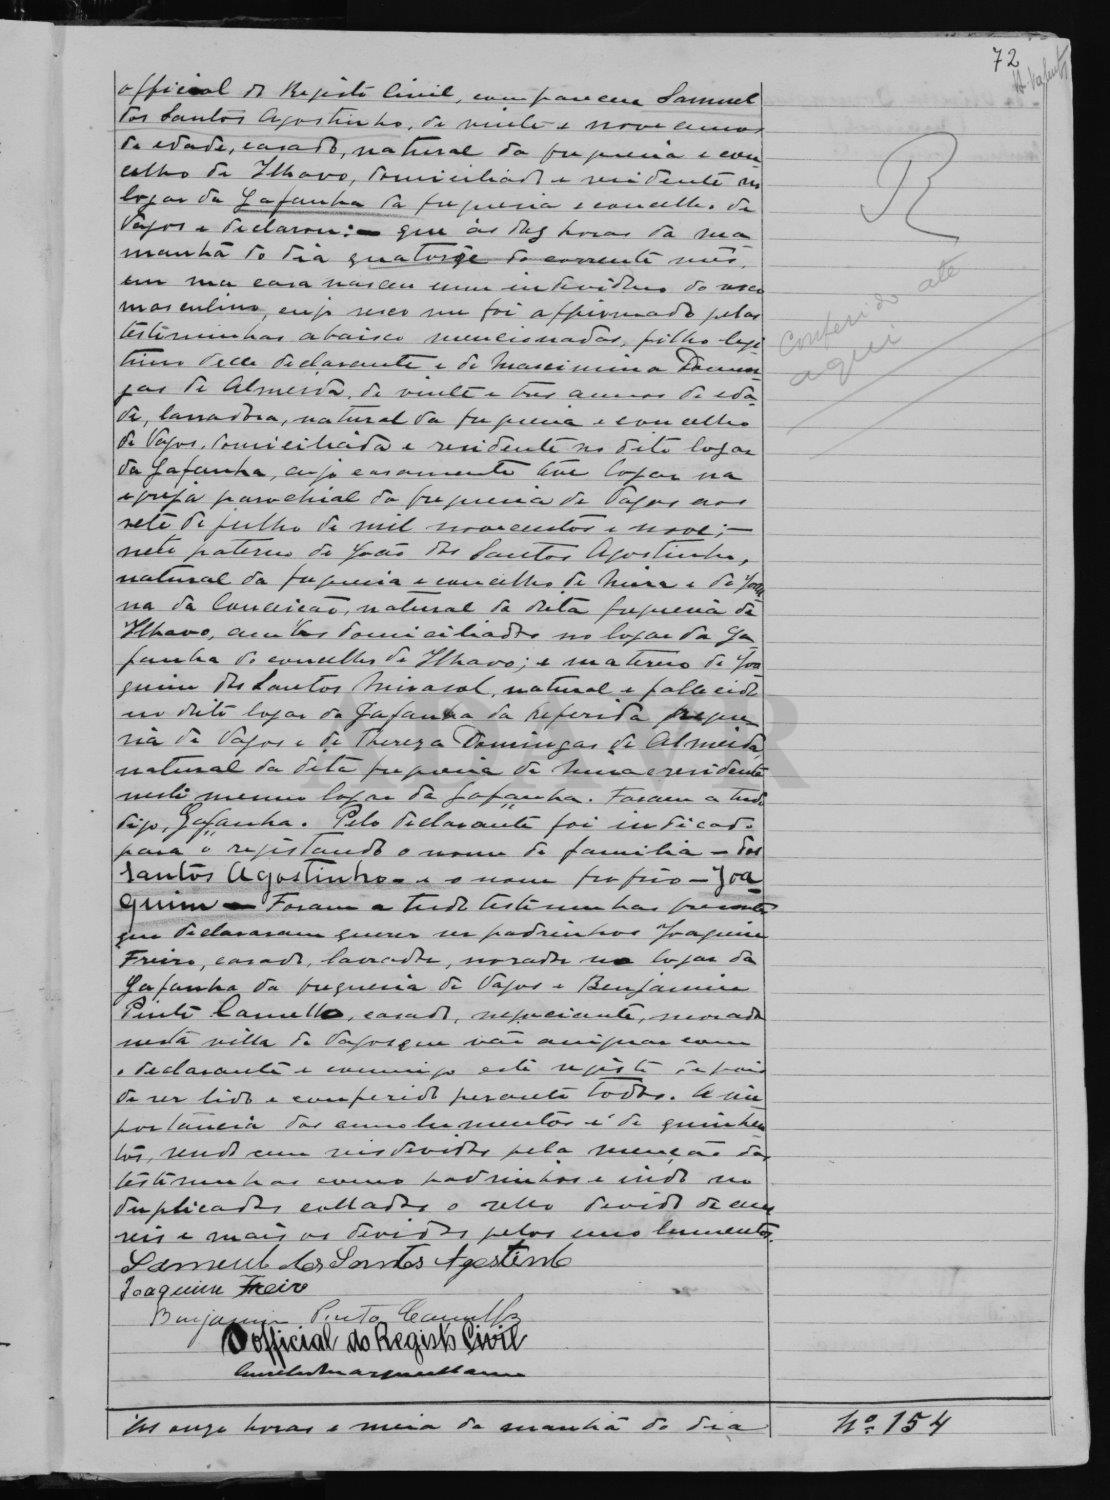 72
official do Registo Civil, compareceu Samuel
dos Santos Agostinho, de vinte e nove annos
de edade, casado, natural da freguesia e con
celho de Ilhavo, domiciliado e residente no
logar da Gafanha da freguesia e concelho de
Vagos e declarou: – que ás dez horas da ma
manhã do dia quatorze do corrente mês,
em sua casa nasceu um individuo do sexo
masculino, cujo sexo me foi affirmado pelas
testemunhas abaixo mencionadas, filho legi
timo delle declarante e de Maximina Domin
gas de Almeida, de vinte e tres annos de eda
de, lavradora, natural da freguesia e concelho
de Vagos, domiciliada e residente no dito logar
da Gafanha, cujo casamento teve logar na
egreja parochial da freguesia de Vagos aos
sete de julho de mil novecentos e nove; –
neto paterno de João dos Santos Agostinho,
natural da freguesia e concelho de Mira e de Joan
na da Conceição, natural da dita freguesia de
Ilhavo, ambos domiciliados no logar da Ga
fanha do concelho de Ilhavo; e materno de Joa
quim dos Santos Mirasol, natural e fallecido
no dito logar da Gafanha da referida fregue
sia de Vagos e de Thereza Domingas de Almeida,
natural da dita freguesia de Mira e residente
neste mesmo logar da Gafanha. Foram a tudo
digo, Gafanha. Pelo declarante foi indicado
para o registando o nome de familia – dos
Santos Agostinho – e o nome proprio – Joa
quim – Foram a tudo testemunhas presentes
que declararam querer ser padrinhos Joaquim
Freire, casado, lavrador, morador no logar da
Gafanha da freguesia de Vagos e Benjamim
Pinto Camello, casado, negociante, morador
nesta villa de Vagos que vão assignar com
o declarante e commigo este registo depois
de ser lido e conferido perante todos. A im
portancia dos emolumentos é de quinhen
tos, sendo cem reis devidos pela menção das
testemunhas como padrinhos e indo no
duplicado collados o sello devido de cem
reis e mais os devidos pelos emolumentos.
Samuel dos Santos Agostinho
Joaquim Freire
Benjamim Pinto Camello
O official do Registo Civil
R
Conferido até
aqui
Ás onze horas e meia da manhã do dia
Nº 154
ADAVR